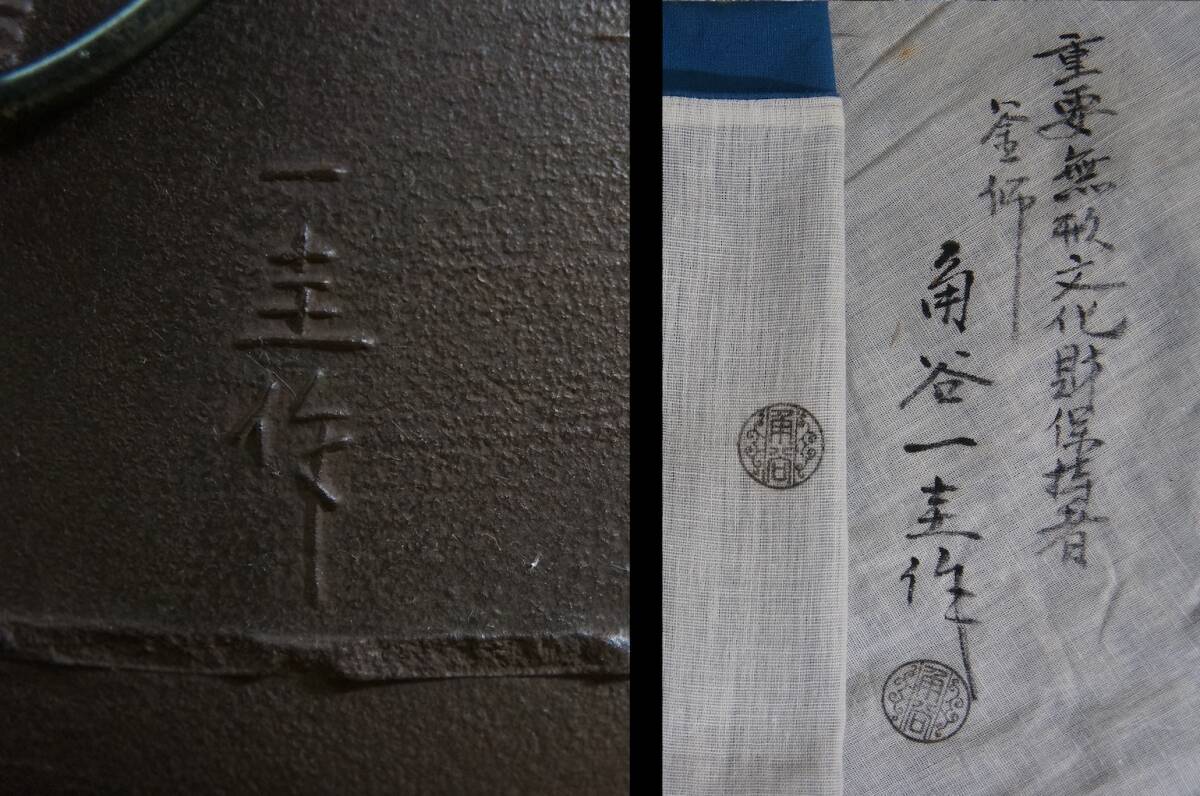 一圭作
重要無形文化財保持者
釜師
角谷一圭作
角谷
角谷